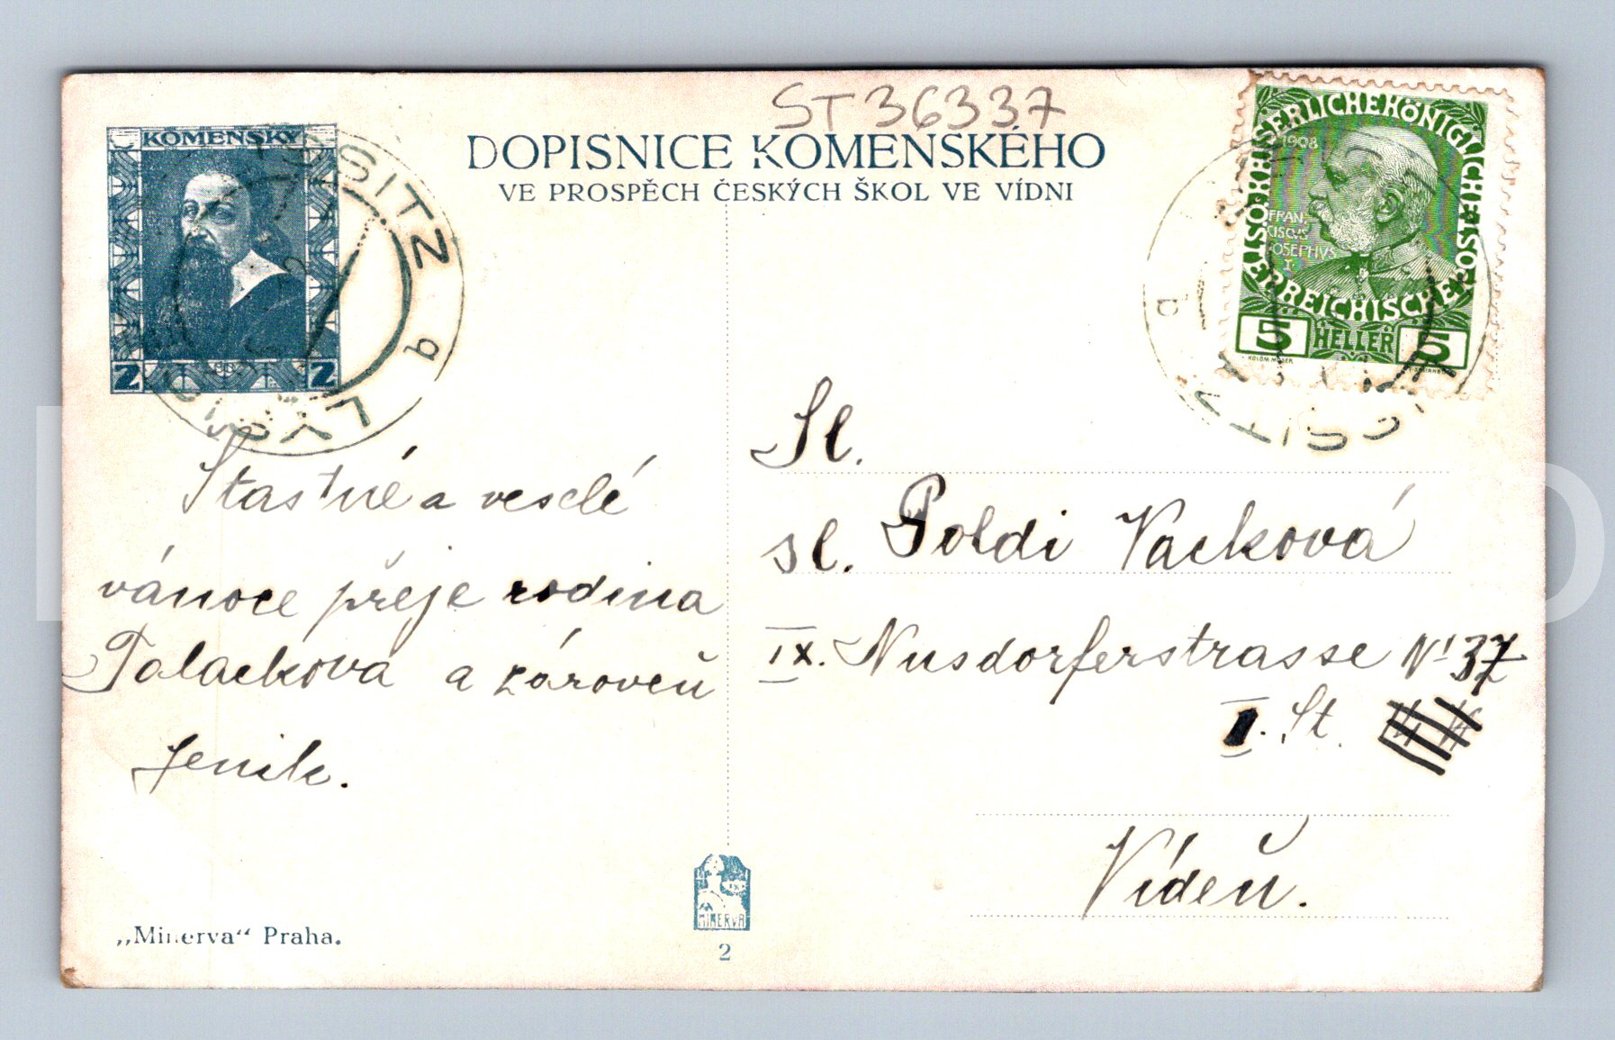 ST36337
DOPISNICE KOMENSKÉHO
VE PROSPĚCH ČESKÝCH ŠKOL VE VÍDNI
KOMENSKÝ
2 2
ÖSTERREICHISCHE
1908
FRAN
CISCVS
IOSEPHVS
I.
5 HELLER 5
KOLOM. MOSER
Stastné a veselé
vánoce přeje rodina
Palackova a zároveň
Jenik.
Sl.
sl. Poldi Vacková
IX. Nusdorferstrasse N! 37
I. St.
Vídeň.
„Minerva“ Praha.
MINERVA
2